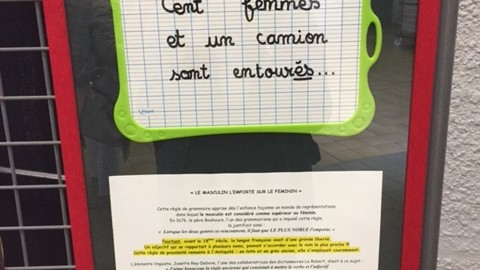 Cent femmes
et un camion
sont entourés...
« LE MASCULIN L'EMPORTE SUR LE FEMININ »
Cette règle de grammaire apprise dès l'enfance façonne un monde de représentations
dans lequel le masculin est considéré comme supérieur au féminin.
En 1675, le père Bouhours, l'un des grammairiens qui a imposé cette règle,
la justifiait ainsi :
« Lorsque les deux genres se rencontrent, il faut que LE PLUS NOBLE l'emporte. »
Pourtant, avant le 18ème siècle, la langue française usait d'une grande liberté.
Un adjectif qui se rapportait à plusieurs noms, pouvait s'accorder avec le nom le plus proche !!
Cette règle de proximité remonte à l'Antiquité : en latin et en grec ancien, elle s'employait couramment.
L'éminente linguiste, Josette Rey-Debove, l'une des collaboratrices des dictionnaires Le Robert, disait à ce sujet :
« J'aime beaucoup la règle ancienne qui consistait à mettre le verbe et l'adjectif